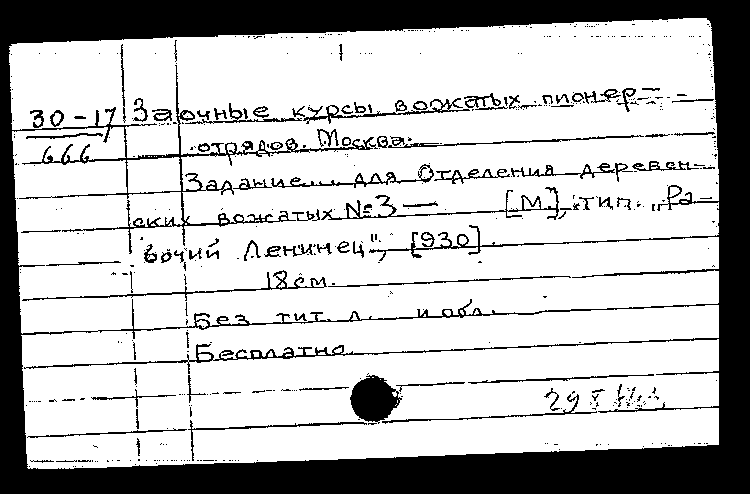 30-17
666
Заочные курсы вожатых пионер-
отрядов. Москва.
Задание... для Отделения деревен-
ских вожатых №3 — [М], тип. „Ра-
бочий Ленинец", [930].
18 см.
Без тит. л. и обл.
Бесплатно.
29 X